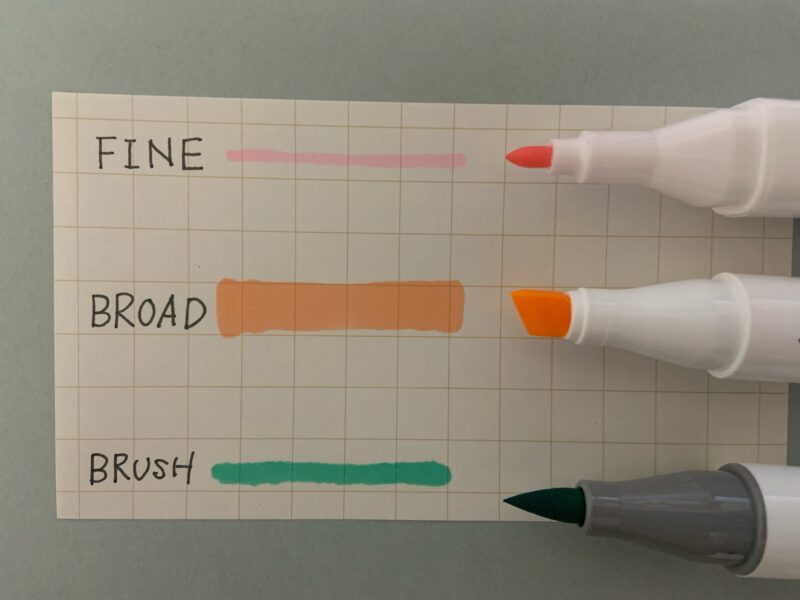 FINE
BROAD
BRUSH